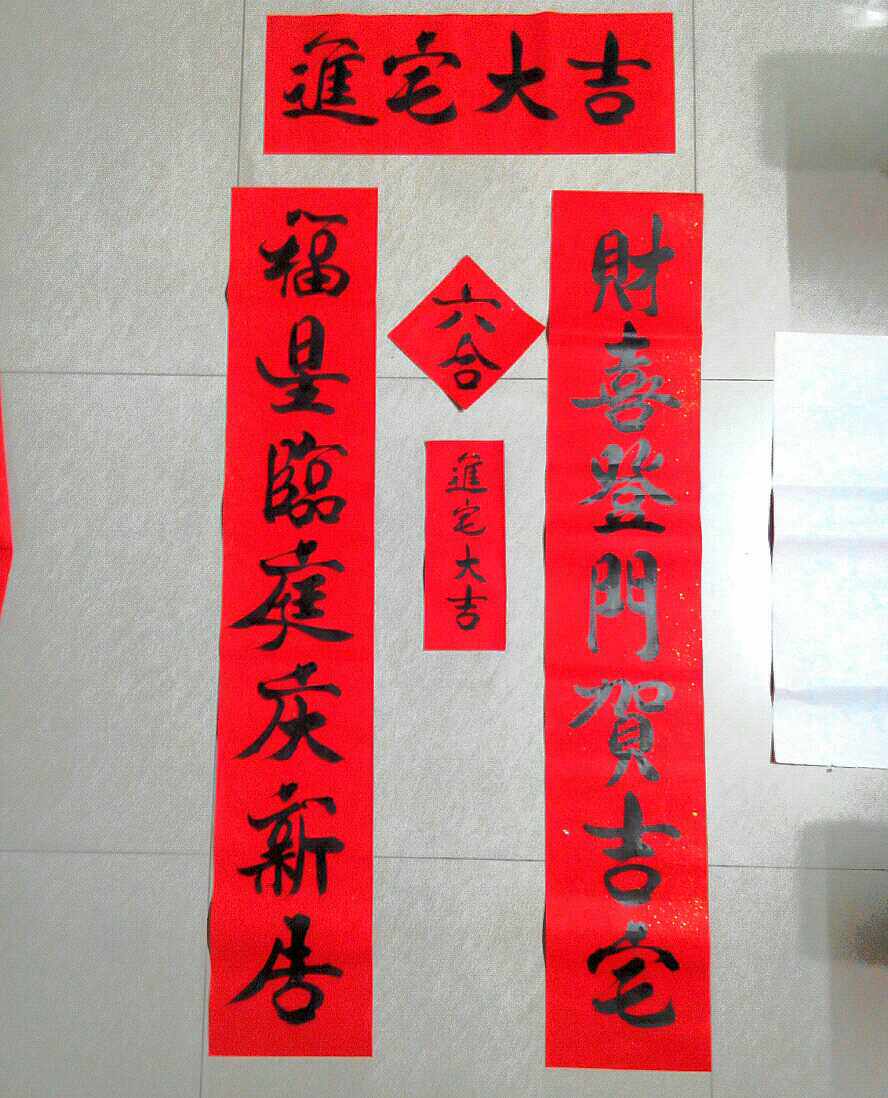 進宅大吉
財喜登門賀吉宅
六合
進宅大吉
福星臨庭庆新居